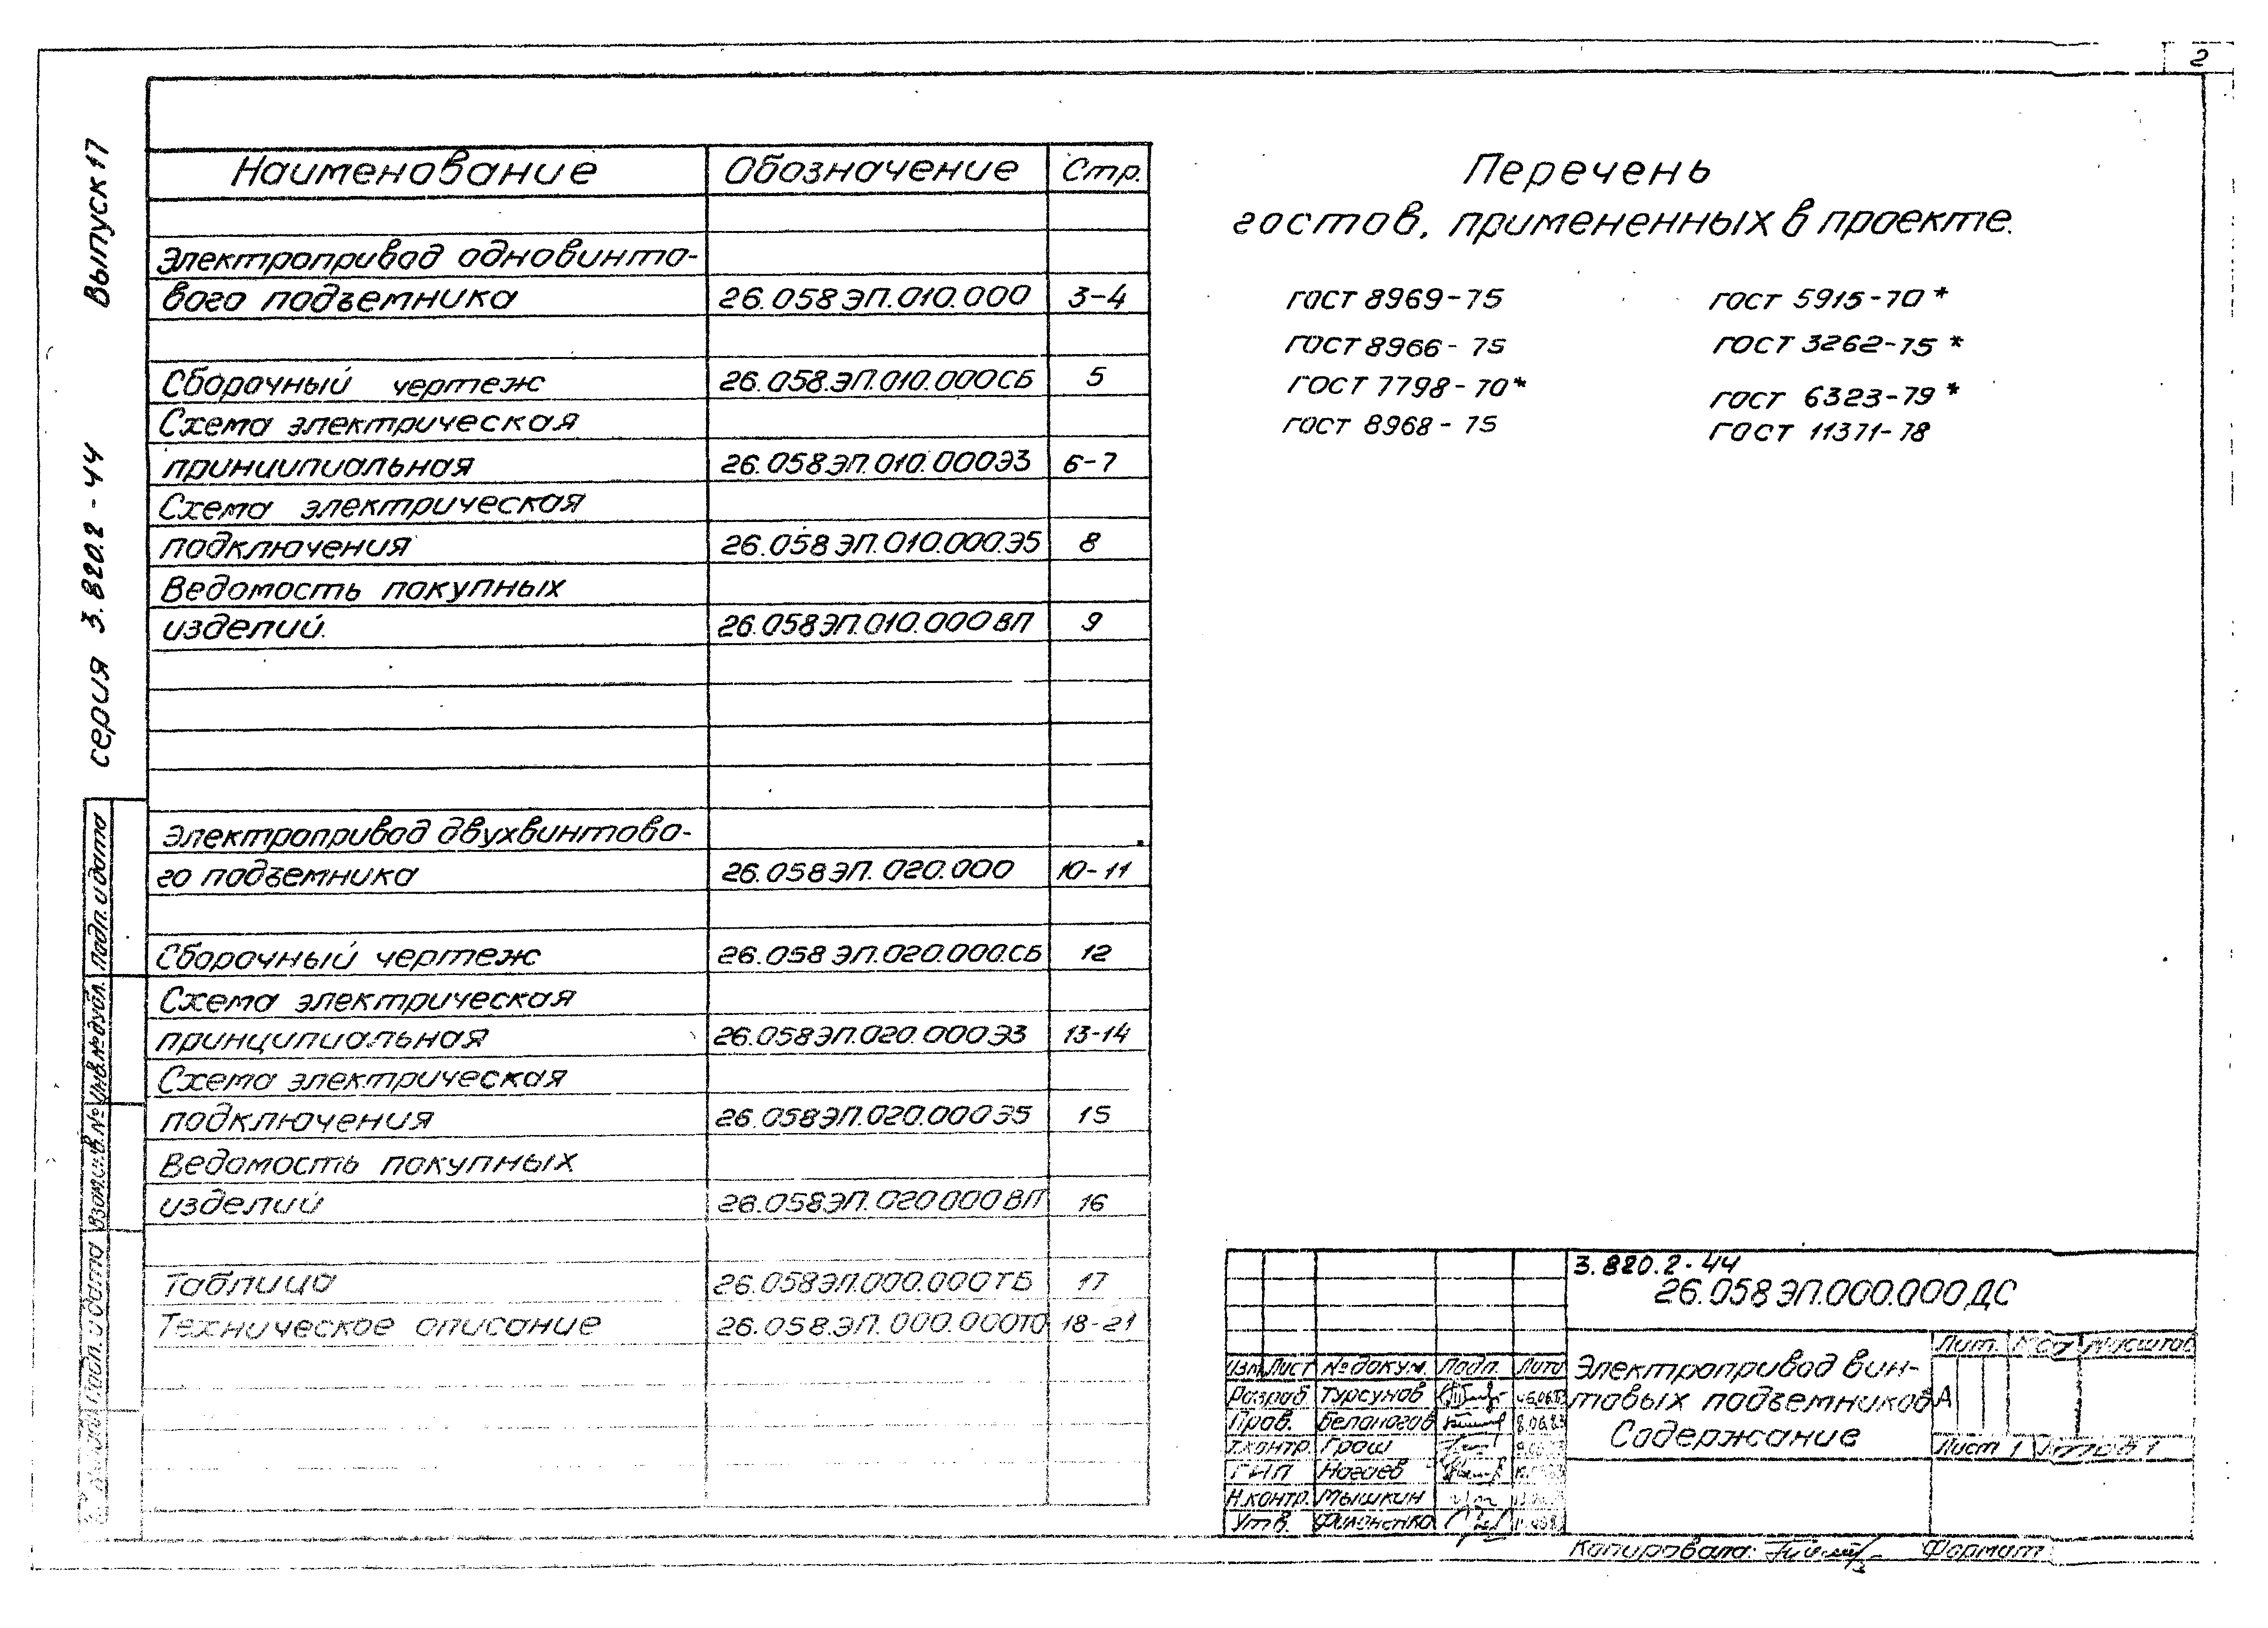 2
Выпуск 17
серия 3.820.2-44
Наименование Обозначение Стр.
Электропривод одновинто-
вого подъемника 26.058ЭП.010.000 3-4
Сборочный чертеж 26.058.ЭП.010.000СБ 5
Схема электрическая
принципиальная 26.058ЭП.010.000Э3 6-7
Схема электрическая
подключения 26.058ЭП.010.000.Э5 8
Ведомость покупных
изделий. 26.058ЭП.010.000ВП 9
Электропривод двухвинтово-
го подъемника 26.058ЭП.020.000 10-11
Сборочный чертеж 26.058ЭП.020.000.СБ 12
Схема электрическая
принципиальная 26.058ЭП.020.000Э3 13-14
Схема электрическая
подключения 26.058ЭП.020.000Э5 15
Ведомость покупных
изделий 26.058ЭП.020000ВП 16
Таблица 26.058ЭП.000.000ТБ 17
Техническое описание 26.058.ЭП.000.000ТО 18-21
Перечень
гостов, примененных в проекте.
ГОСТ 8969-75 ГОСТ 5915-70*
ГОСТ 8966-75 ГОСТ 3262-75*
ГОСТ 7798-70* ГОСТ 6323-79*
ГОСТ 8968-75 ГОСТ 11371-78
Подп. и дата
Инв.№ дубл.
Взам.инв.№
Подп. и дата
3.820.2-44
26.058ЭП.000.000ДС
Изм Лист № докум. Подп. Дата
Разраб Турсунов
Пров. Белоногов
Т.контр. Грош
ГИП Нагаев
Н.контр. Мышкин
Утв. Филоненко
Электропривод вин-
товых подъемников
Содержание
Лит. Масштаб
А
Лист 1
Копировала: Формат